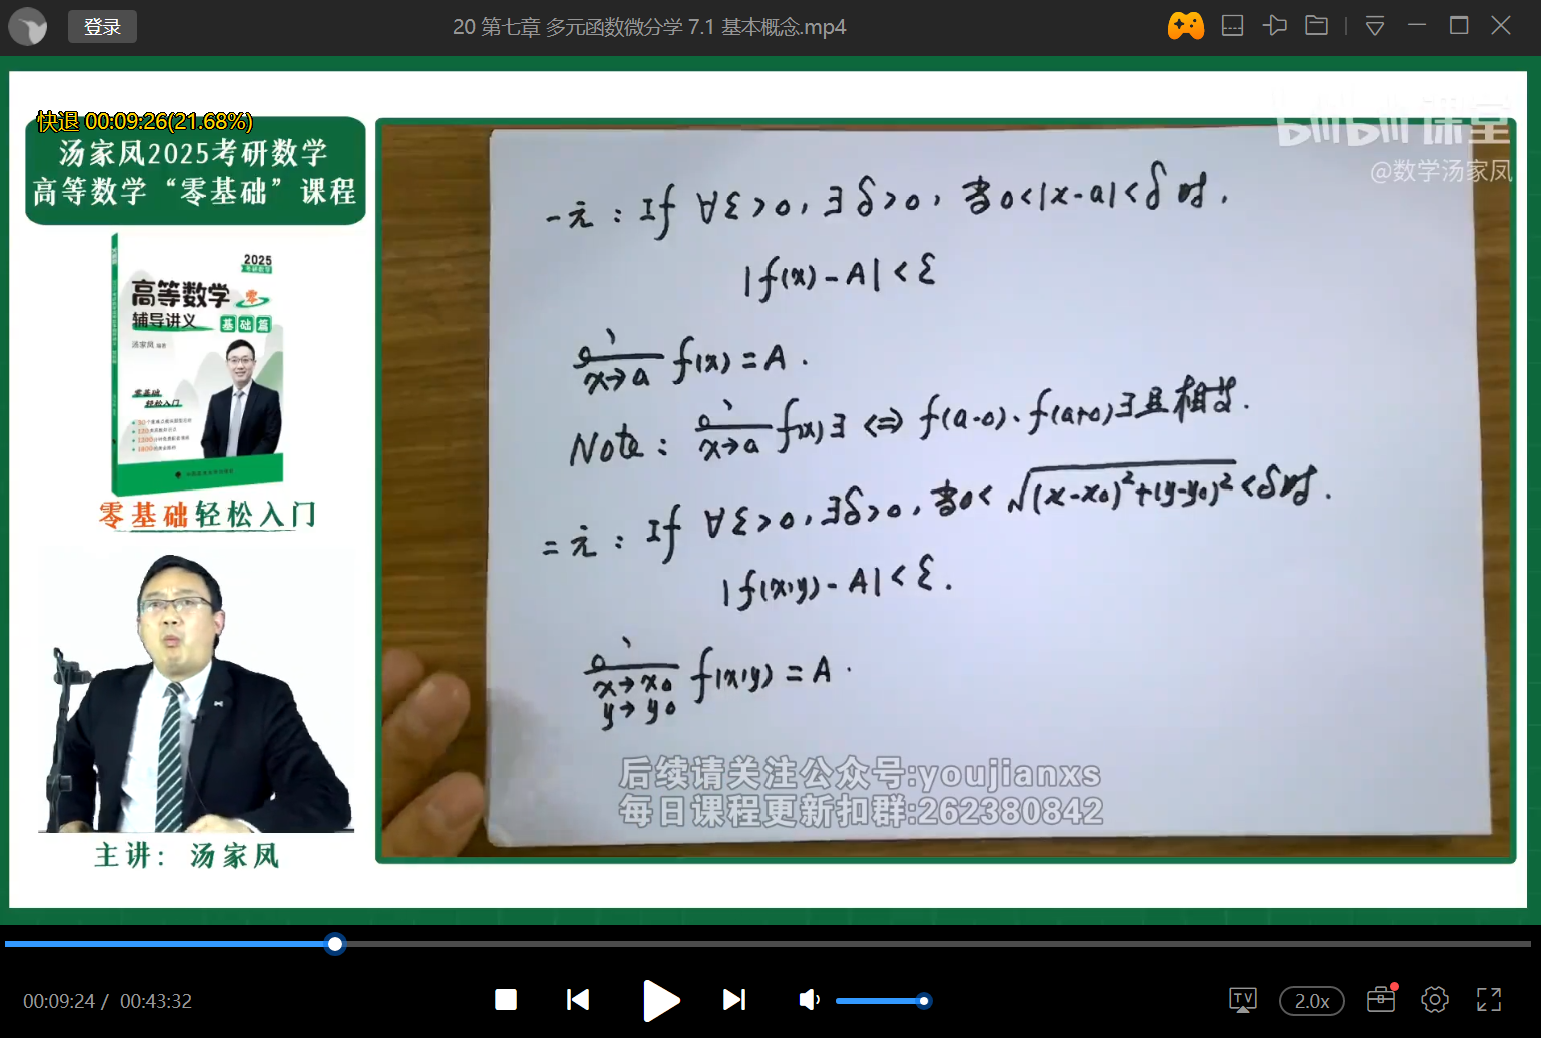 登录
20 第七章 多元函数微分学 7.1 基本概念.mp4
快退 00:09:26(21.68%)
汤家凤2025考研数学
高等数学“零基础”课程
2025
考研数学
高等数学 零
辅导讲义 基础篇
汤家凤 编著
零基础
轻松入门
零基础轻松入门
主讲：汤家凤
bilibili课堂
@数学汤家凤
一元：If ∀ε>0，∃δ>0，当0<|x-a|<δ时，
|f(x)-A|<ε
lim f(x)=A.
x→a
Note： lim f(x)∃ ⇔ f(a-0)、f(a+0)∃且相等.
x→a
二元：If ∀ε>0，∃δ>0，当0<√(x-x0)²+(y-y0)²<δ时.
|f(x,y)-A|<ε.
lim f(x,y)=A.
x→x0
y→y0
后续请关注公众号:youjianxs
每日课程更新扣群:262380842
00:09:24 / 00:43:32
TV
2.0x